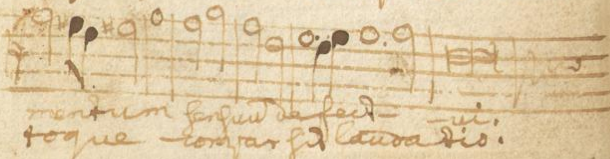 mentum sensuū defect- -ui.
toque -compar sit laudatio.